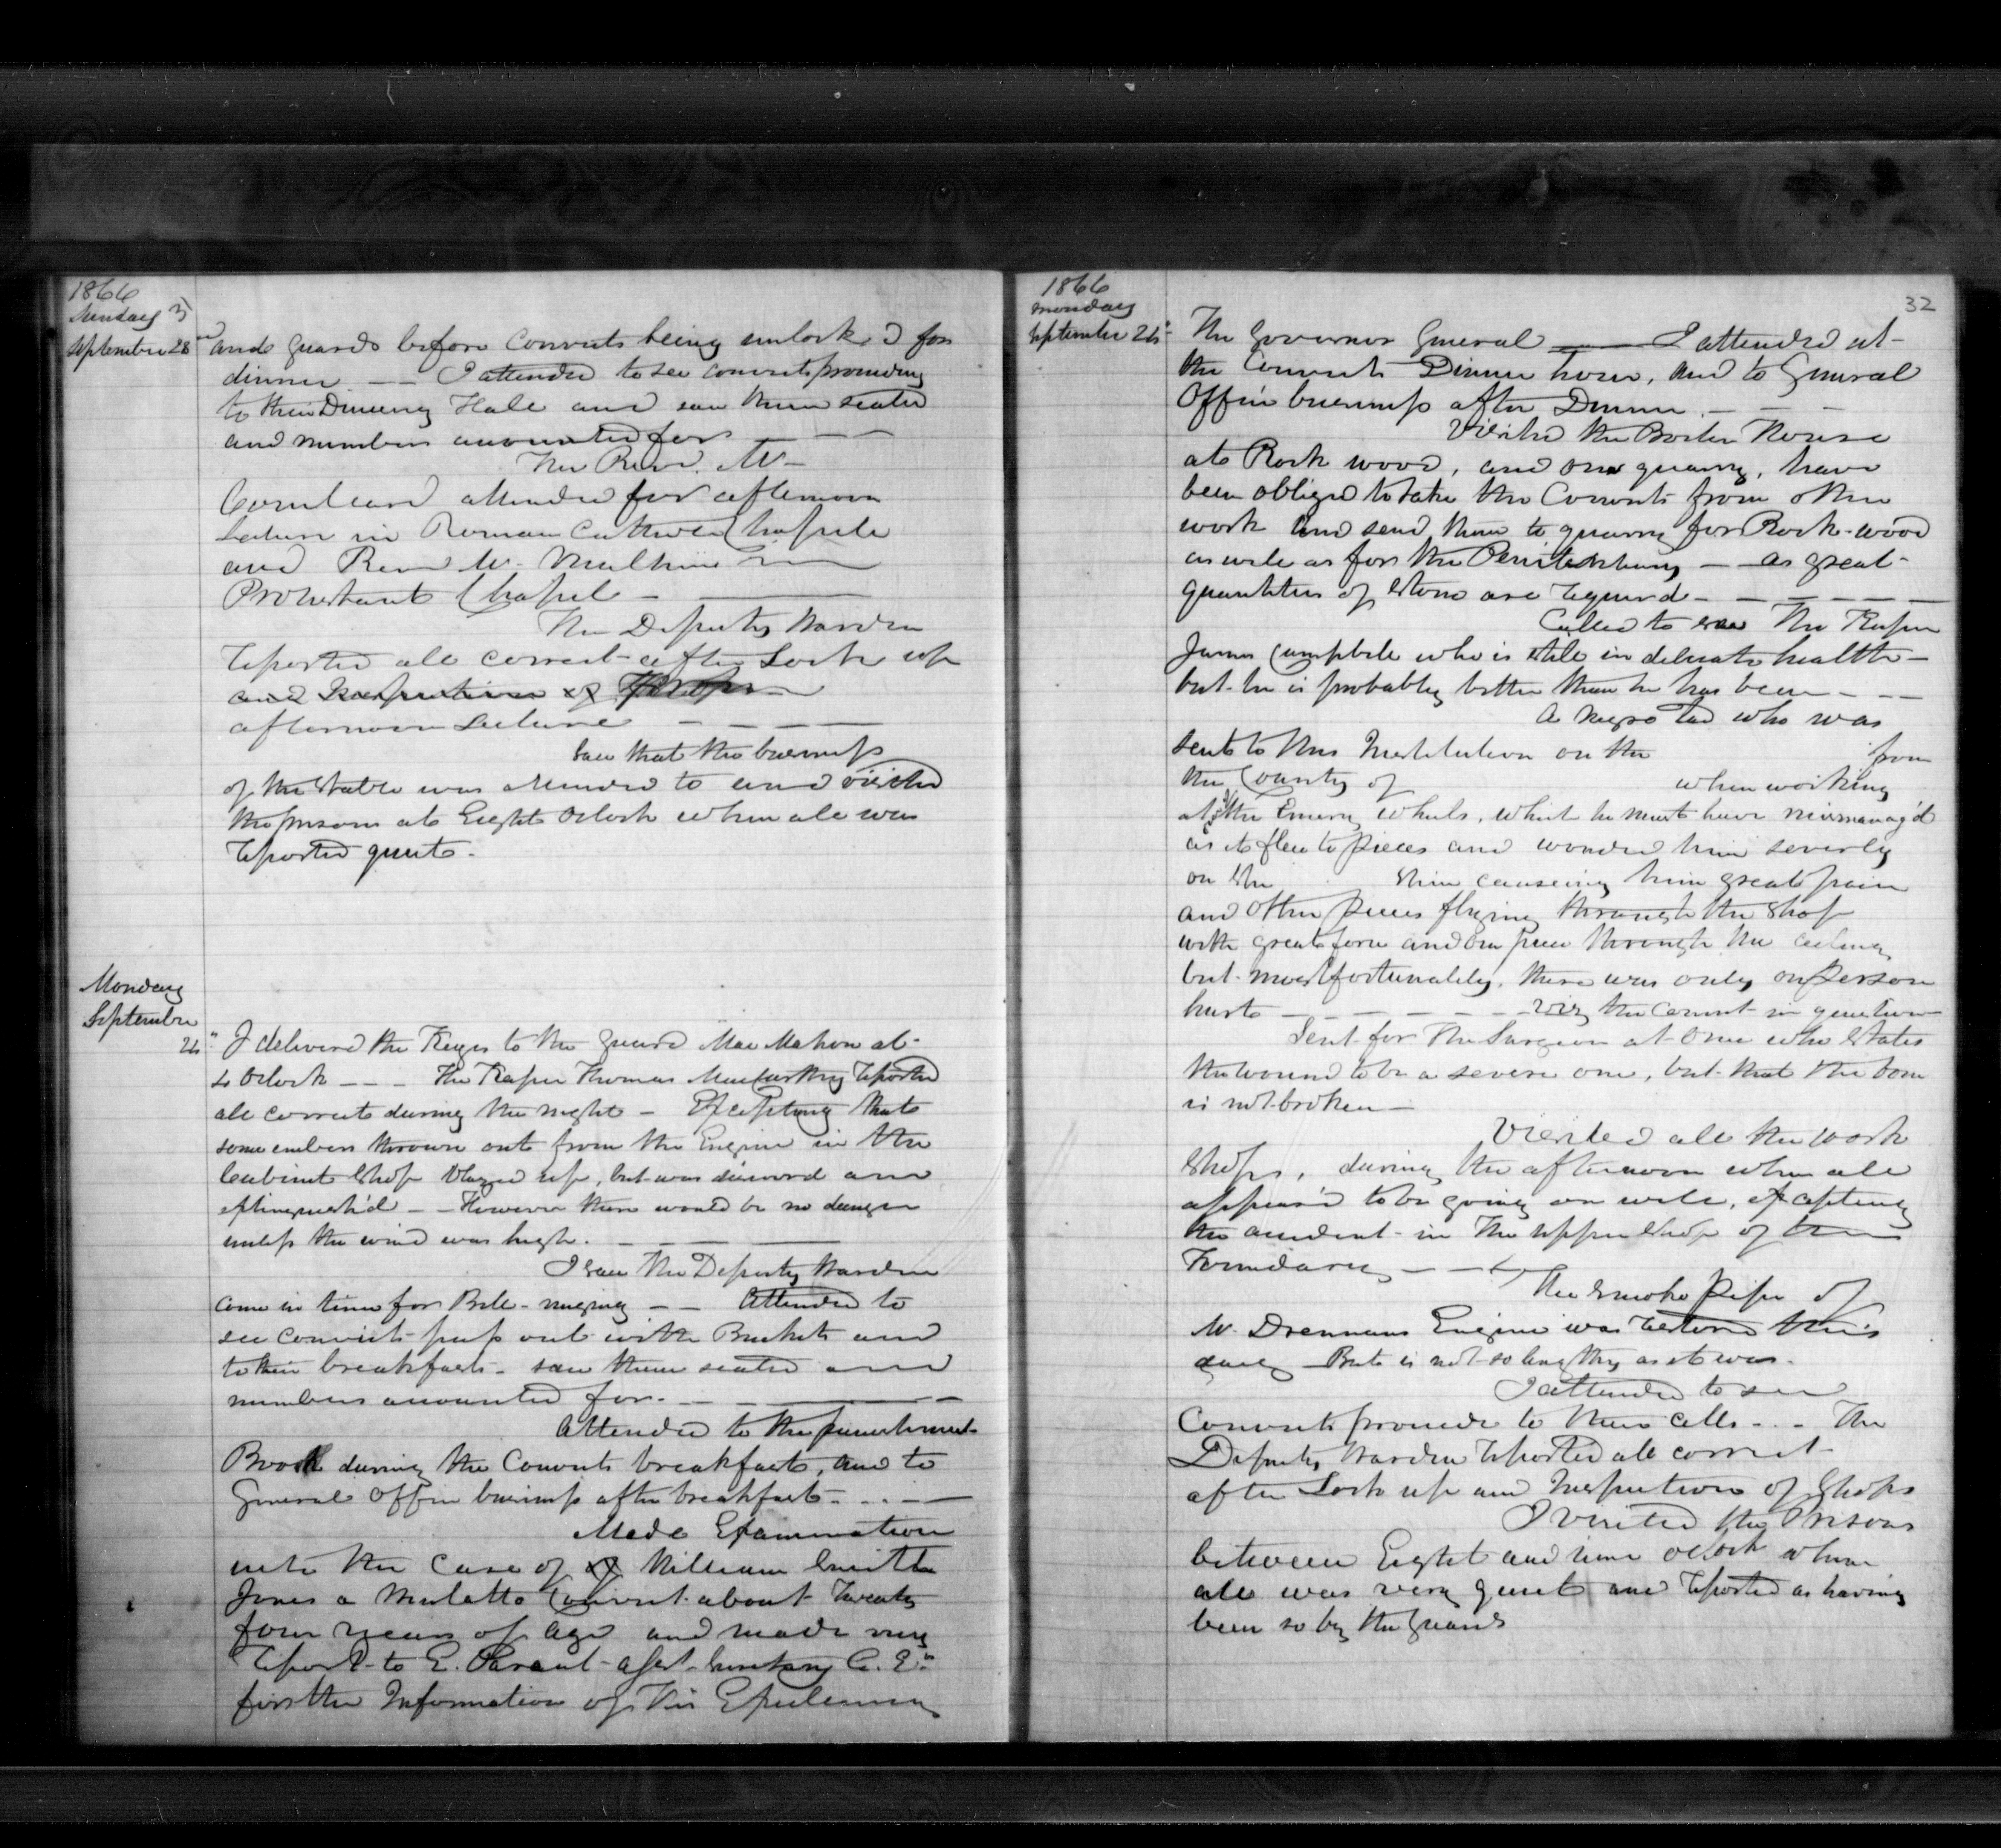 1866
Sunday
September 23
and guards before Convicts being unlock'd for
dinner. — — I attended to see convicts proceeding
to their Dinning Hall and saw them seated
and numbers accounted for — — —
The Revd. Mr
attended for afternoon
Lecture in Roman Catholic Chapele
and Revd Mr. Mulkins in
Protestant Chapel — ———
The Deputy Warden
reported all correct after Lock up
and Inspection of Shops
afternoon Lecture — — — —
Saw that the business
of the Stable was attended to and visited
the prison at Eight Oclock when all was
reported quiet.
Monday
September
24" I deliverd the Keys to the Guard MacMahon at
Oclock — — — The Keeper Thomas MacCarthy reported
all correct during the night — Excepting that
some embers thrown out from the Engine in the
Cabinet Shop blazed up, but was discoverd and
extinguish'd — — However there would be no danger
unless the wind was high. — — —
I saw the Deputy Warden
come in time for Bell-ringing — — Attended to
see convicts pass out with Buckets and
to their breakfast — saw them seated and
numbers accounted for. — — — —
Attended to the punishment
Book during the Convicts breakfast, and to
General Office business after breakfast — . . . —
Made Examination
into the case of of William Smith
Jones a Mulatto Convict about Twenty
four years of age and made my
report to E. Parent Asst. Secretary C. E."
for the Information of His Excellency
1866
Monday
September 24"
32
The Governor General —— I attended at
the Convicts Dinner hour, and to General
Office business after Dinner. — — —
Visited the Boiler House
at Rock wood, and our quarry, have
been obliged to take the Convicts from other
work and send them to quarry for Rock-wood
as well as for the Penitentiary — as great
quantities of stone are requird — — — — —
Called to see The Keeper
James Campbell who is still in delicate health —
but he is probably better than he has been — — —
A negro lad who was
sent to this Institution on the from
the County of when working
at the Emery wheels, which he must have mismanag'd
as it flew to pieces and wounded him severly
on the shin causeing him great pain
and other pieces flyeing through the shop
with great force and one piece through the ceiling
but most fortunately, there was only on person
hurt — — — — — — viz, the Convict in question
Sent for The Surgeon at once who states
the wound to be a severe one, but that the bone
is not broken —
Visited all the work
Shops, during the afternoon when all
appear'd to be going on well, excepting
the accident in the upper shop of the
Foundary — — —
The smoke pipe of
Mr. Drennans Engine was restored this
day — But is not so lengthy as it was.
I attended to see
Convicts proceede to their cells — . — The
Deputy Warden reported all correct
after Lock up and Inspection of Shops
I visited the Prison
between Eight and nine oclock when
all was very quiet and reported as having
been so by the Guards